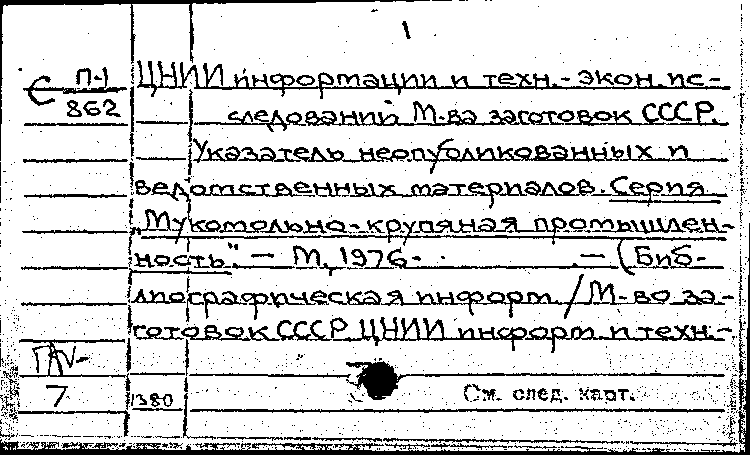 1
С П-1
862
ЦНИИ информации и техн.-экон. ис-
следований М-ва заготовок СССР.
Указатель неопубликованных и
ведомственных материалов. Серия
"Мукомольно-крупяная промышлен-
ность". — М., 1976- . — (Биб-
лиографическая информ. / М-во за-
готовок СССР. ЦНИИ информ. и техн.-
7
1380
См. след. карт.